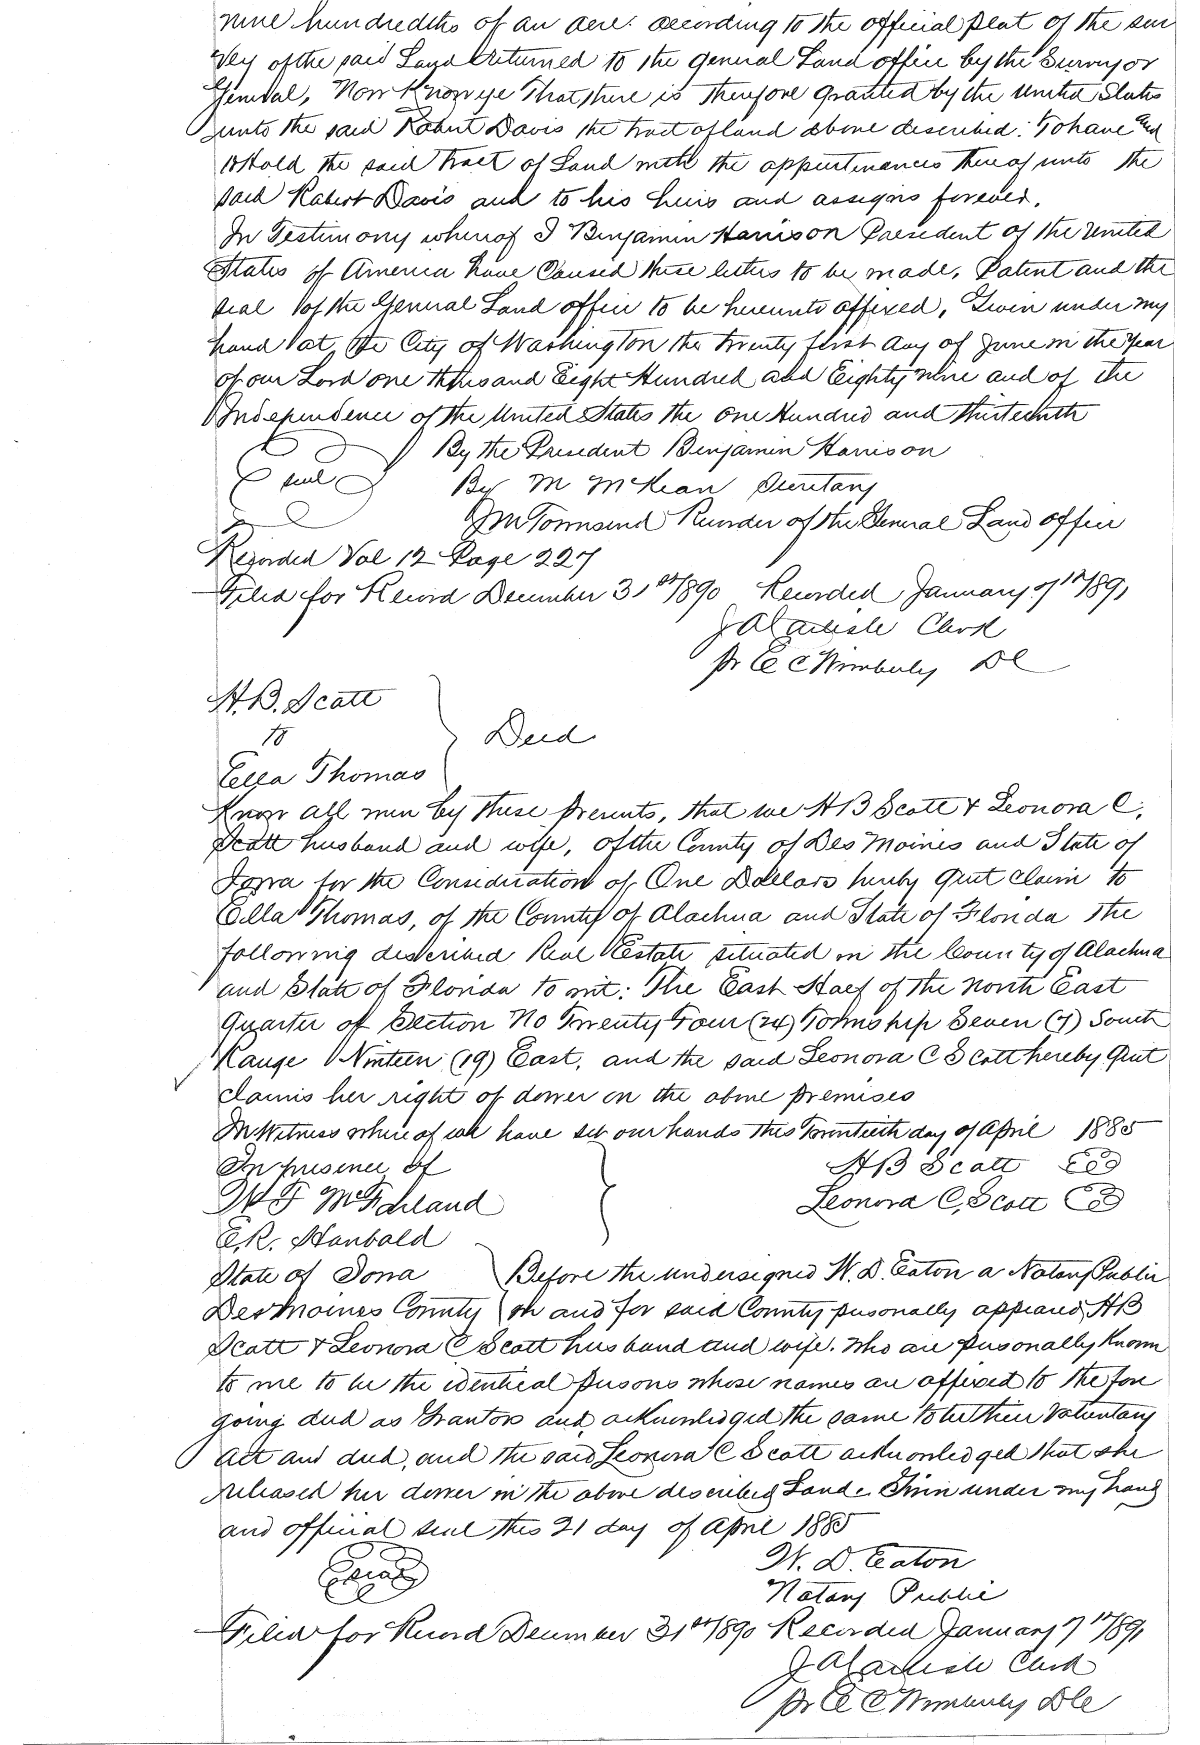 nine hundredths of an acre: according to the official plat of the sur
vey of the said Land returned to the general Land office by the Surveyor
General, Now Know ye That there is therefore granted by the United States
unto the said Robert Davis the tract of land above described: To have and
to Hold the said Tract of Land with the appurtenances thereof unto the
said Robert Davis and to his heirs and assigns forever.
In Testimony whereof I Benjamin Harrison President of the United
States of America have Caused these letters to be made, Patent and the
seal of the General Land office to be hereunto affixed, Given under my
hand at the City of Washington the twenty first day of June in the Year
of our Lord one thousand Eight Hundred and Eighty nine and of the
Independence of the United States the one Hundred and thirteenth
By the President Benjamin Harrison
seal By M McKean Secretary
J M Townsend Recorder of the General Land office
Recorded Vol 12 Page 227
Filed for Record December 31st 1890 Recorded January 7th 1891
J A Carlisle Clerk
pr E C Wimberly DC
H.B. Scott
to
Deed
Ella Thomas
Know all men by these presents, that we H B Scott & Leonora C.
Scott husband and wife, of the County of Des Moines and State of
Iowa for the Consideration of One Dollars hereby Quit claim to
Ella Thomas, of the County of Alachua and State of Florida the
following described Real Estate situated in the County of Alachua
and State of Florida to wit: The East Half of the North East
Quarter of Section No Twenty Four (24) Township Seven (7) South
Range Ninteen (19) East, and the said Leonora C Scott hereby Quit
claims her right of dower on the above premises
In Witness where of we have set our hands this Twentieth day of April 1885
In presence of H B Scott
W F McFarland Leonora C. Scott
E.R. Hanbald
State of Iowa Before the undersigned W. D. Eaton a Notary Public
Des Moines County in and for said County personally appeared H B
Scott & Leonora C Scott husband and wife. Who are personally Known
to me to be the identical persons whose names are affixed to the fore
going deed as Grantors and acknowledged the same to be their Voluntary
act and deed, and the said Leonora C Scott acknowledged that she
released her dower in the above described Land. Given under my hand
and official seal this 21 day of April 1885
seal W. D. Eaton
Notary Public
Filed for Record December 31st 1890 Recorded January 7th 1891
J A Carlisle Clerk
pr E C Wimberly DC